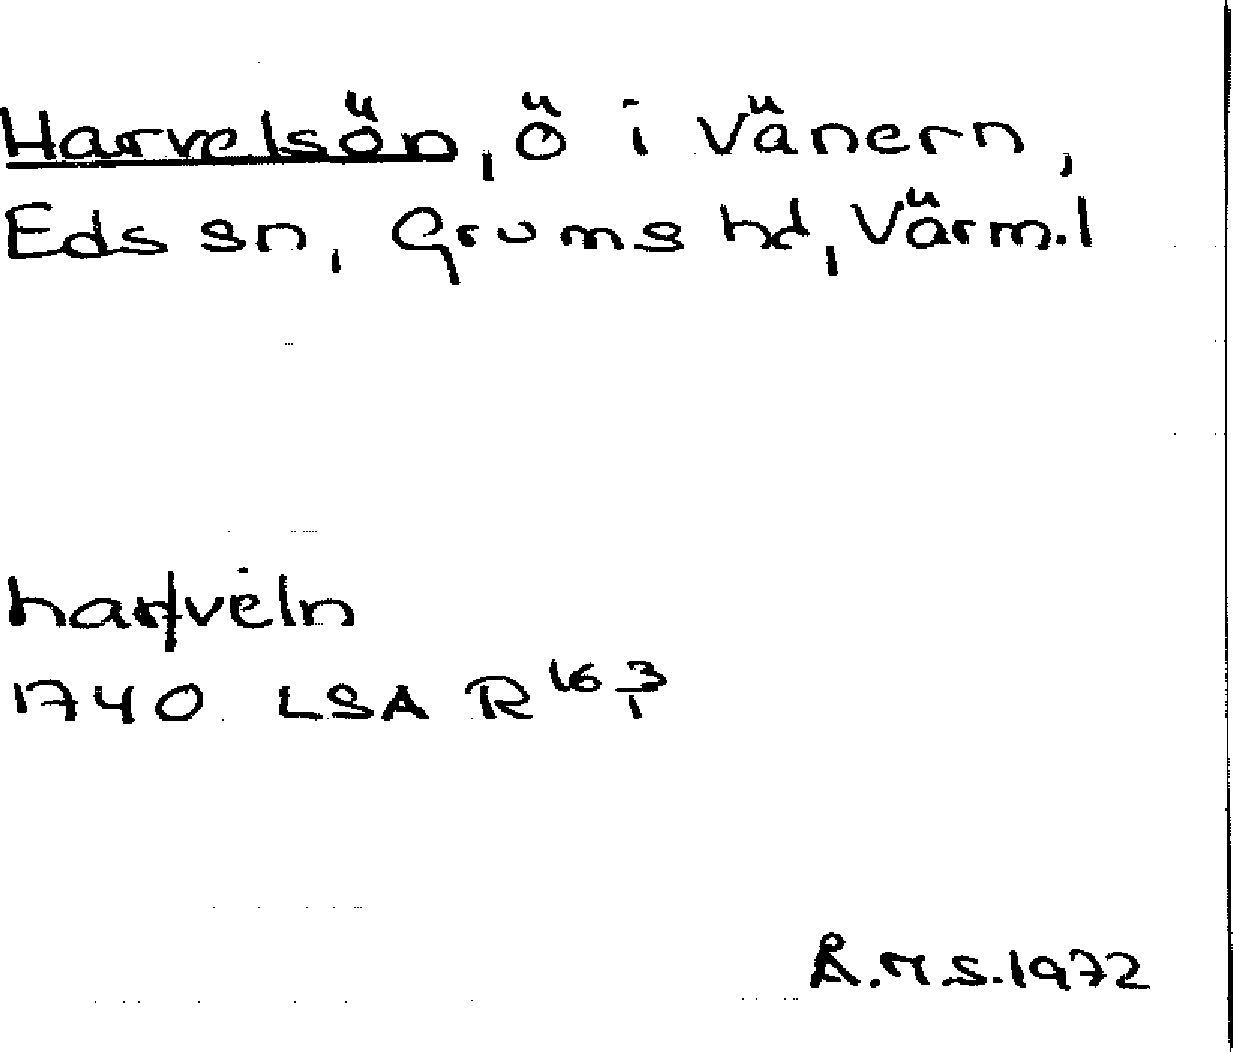 Harvelsön, ö i Vänern,
Eds sn, Grums hd, Värm.l
harfveln
1740 LSA R 16 3/1
Å.M S.1972